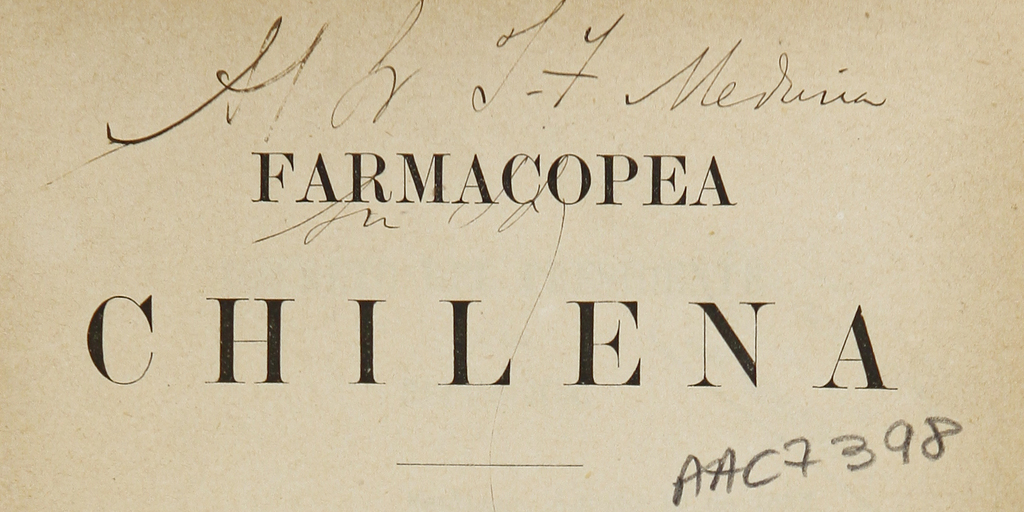 Al Sr J. T. Medina
FARMACOPEA
CHILENA
AAC7398